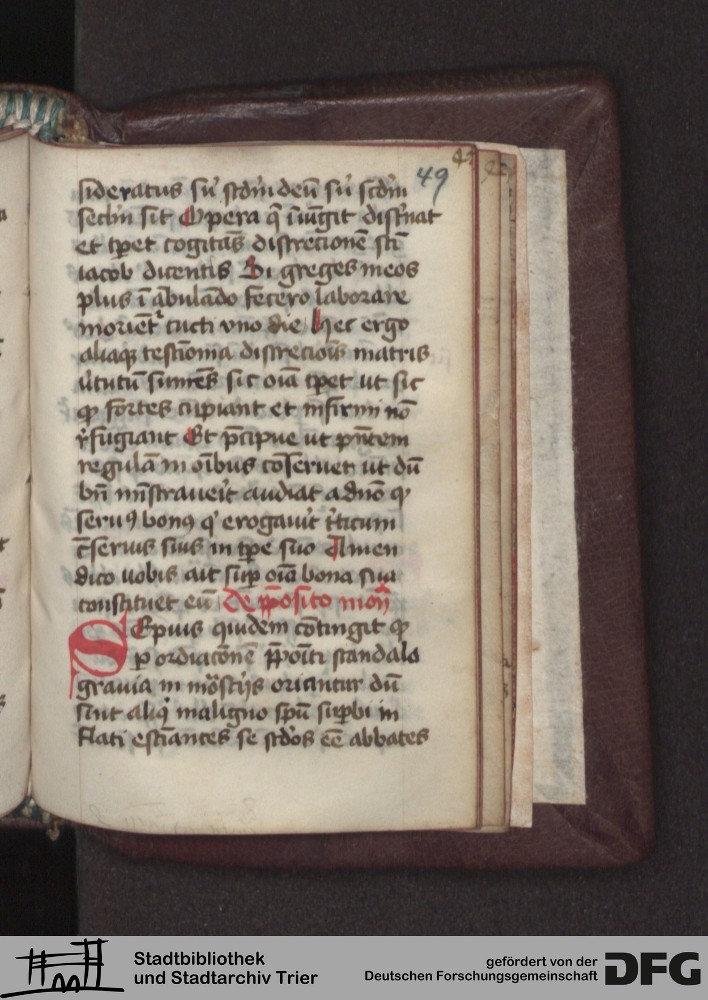 49
sideratus sū scdm deū sū scdm
seclm sit Opera q̄ iniūgit disc̄nat
et tp̄et cogitās discrecionē scī
iacob dicentis Si greges meos
plus ī ābulādo fecero laborare
morient cūcti vno die Hec ergo
aliaqꝫ testīonia discrecioīs matris
v̓tutū sumēs sic oīa tp̄et ut sic
qꝫ fortes cupiant et infirmi nō
r̓fugiant Et p̄cipue ut pn̄tem
regulā in oībus cōseruet ut dū
bn̄ mīstraueit̓ audiat a dnō qꝫ
seruꝰ bonꝰ q̓ erogauit t̓ticum
ꝯseruis suis in tp̄e suo Amen
dico uobis ait sup̄ oīa bona sua
constituet eū De pp̄osito moñ
SEpius quidem cōtingit qꝫ
p̲ ordiacōnē pp̄oīti scandala
grauia in mōstijs oriantur dū
sint aliq̓ maligno spū sup̄bi in
flati estīantes se scd̓os eē abbates
Stadtbibliothek
und Stadtarchiv Trier
gefördert von der
Deutschen Forschungsgemeinschaft
DFG